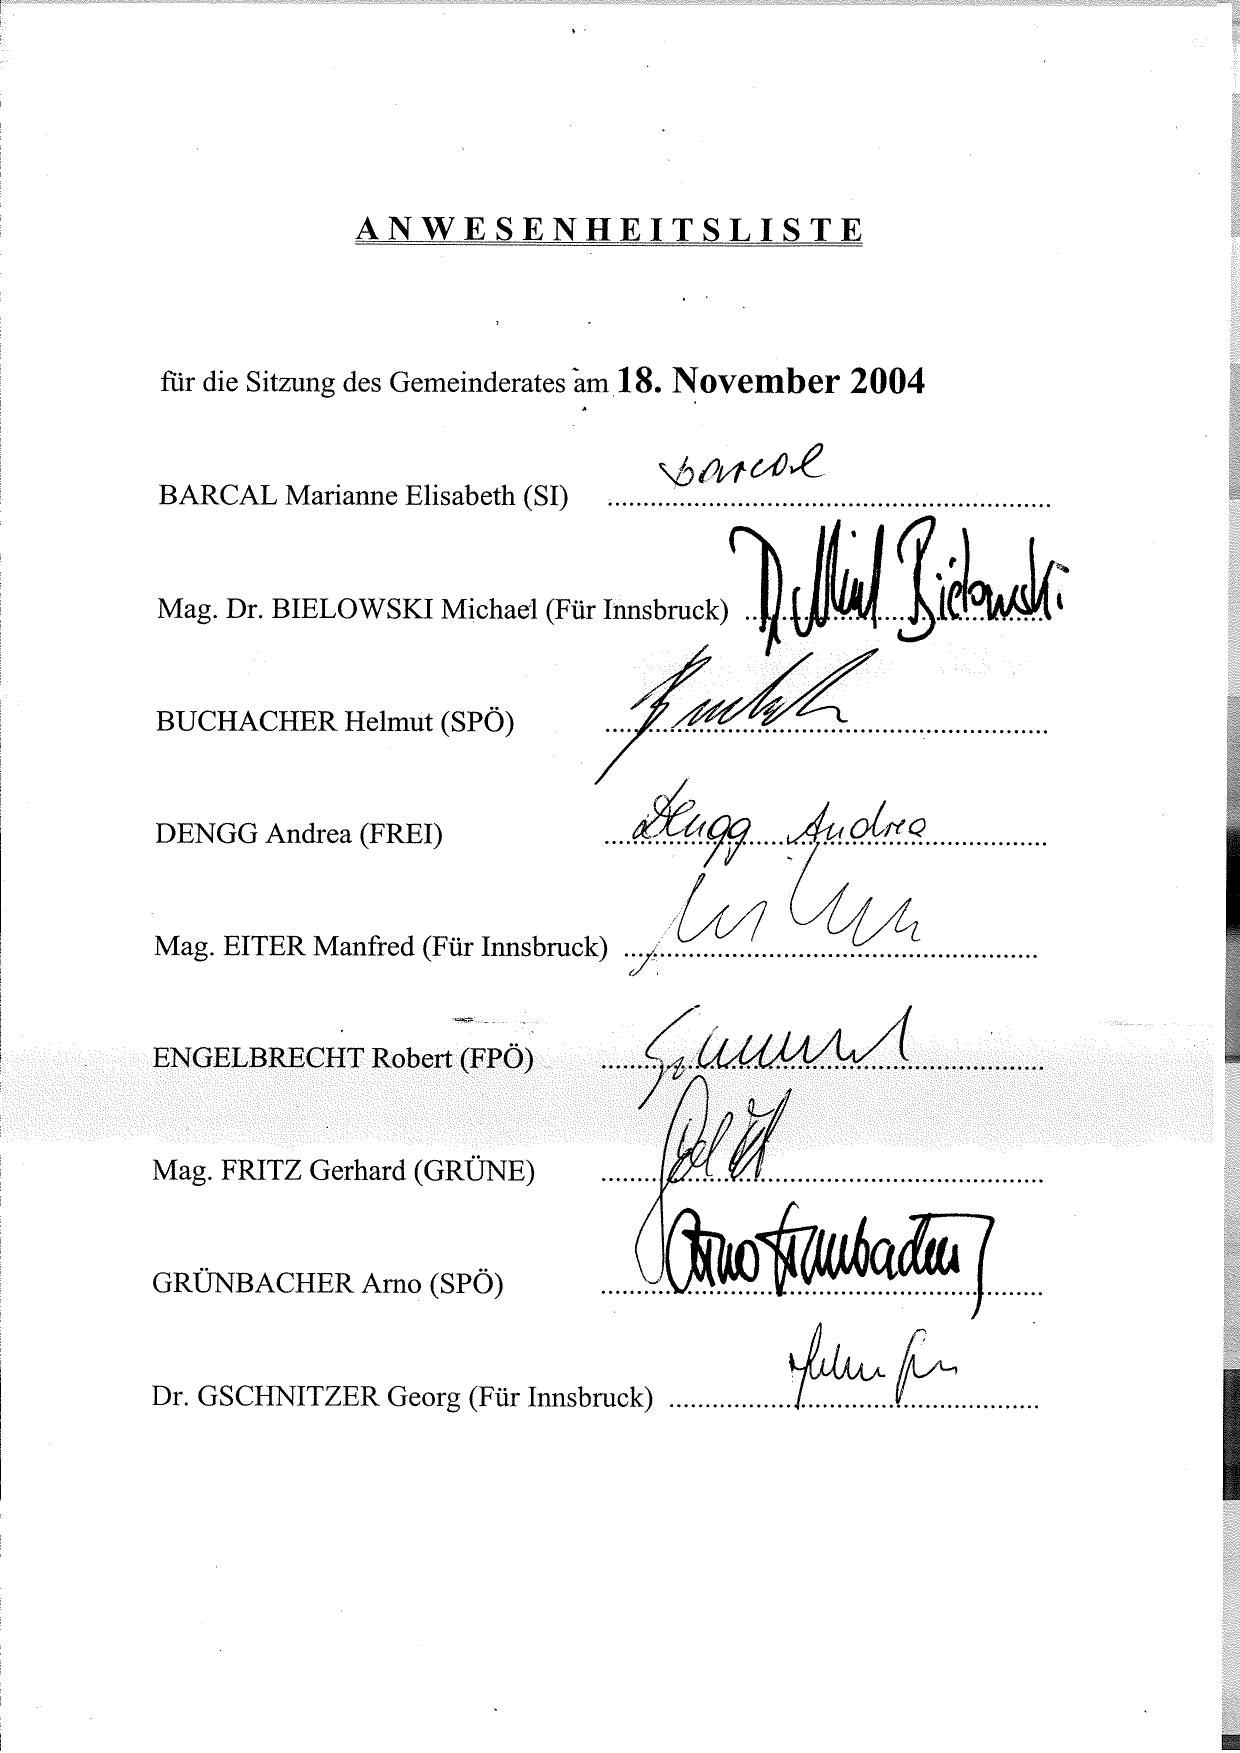 ANWESENHEITSLISTE
für die Sitzung des Gemeinderates am 18. November 2004
Barcal
BARCAL Marianne Elisabeth (SI) ........................................
Mag. Dr. BIELOWSKI Michael (Für Innsbruck) .......... Bielowski
BUCHACHER Helmut (SPÖ) ........................................
DENGG Andrea (FREI) .......... Dengg Andrea
Mag. EITER Manfred (Für Innsbruck) ........................................
ENGELBRECHT Robert (FPÖ) ........................................
Mag. FRITZ Gerhard (GRÜNE) ........................................
Arno Grünbacher
GRÜNBACHER Arno (SPÖ) ........................................
Dr. GSCHNITZER Georg (Für Innsbruck) ........................................